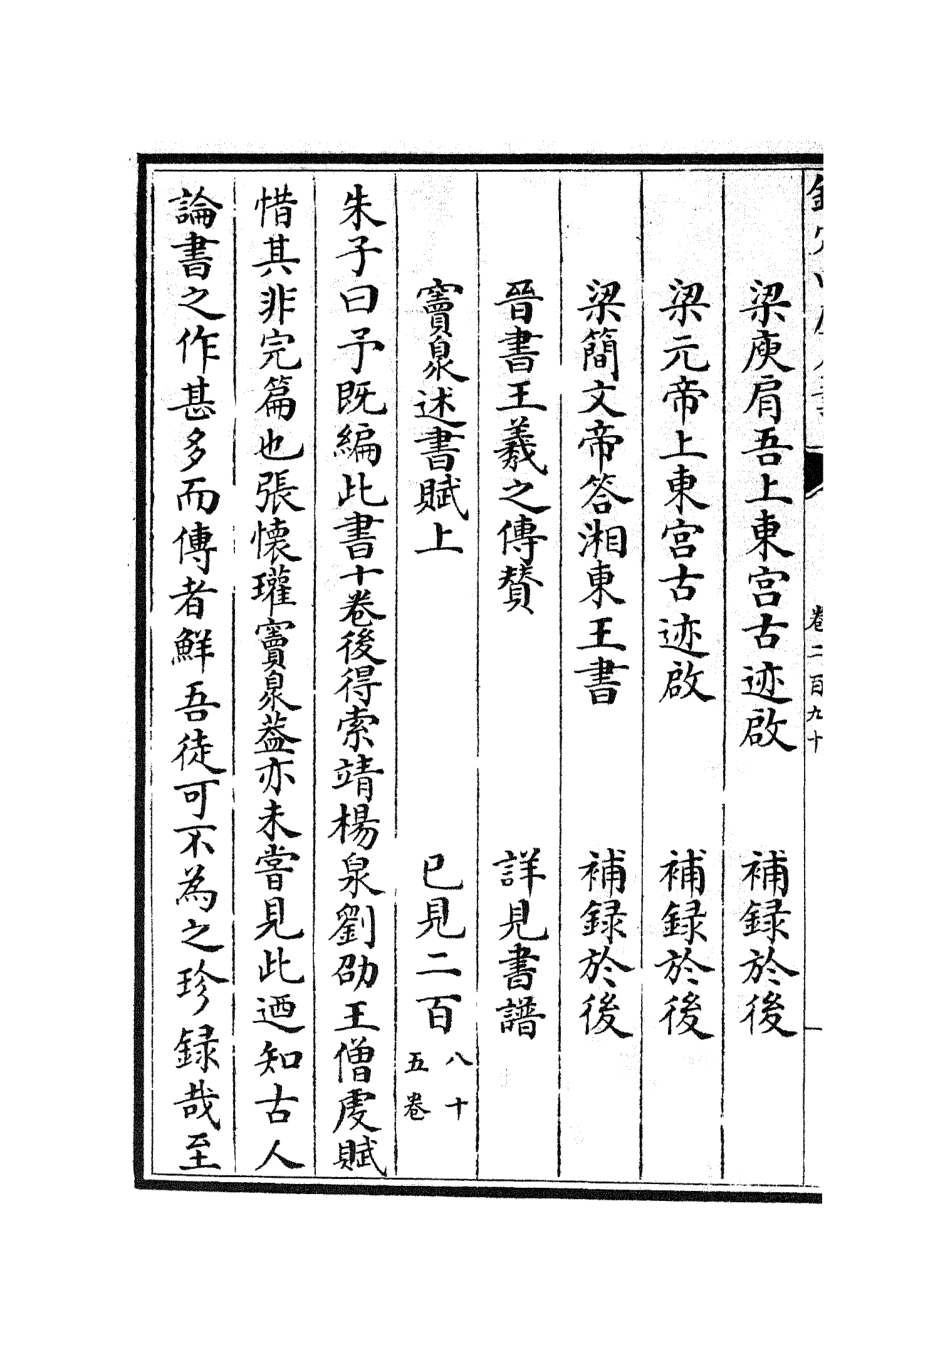 卷二百九十
梁庾肩吾上東宫古迹啟　補録於後
梁元帝上東宫古迹啟　補録於後
梁簡文帝答湘東王書　補録於後
晉書王羲之傳贊　詳見書譜
竇泉述書賦上　已見二百八十五卷
朱子曰予既編此書十卷後得索靖楊泉劉劭王僧虔賦
惜其非完篇也張懐瓘竇泉葢亦未嘗見此迺知古人
論書之作甚多而傳者鮮吾徒可不為之珍録哉至